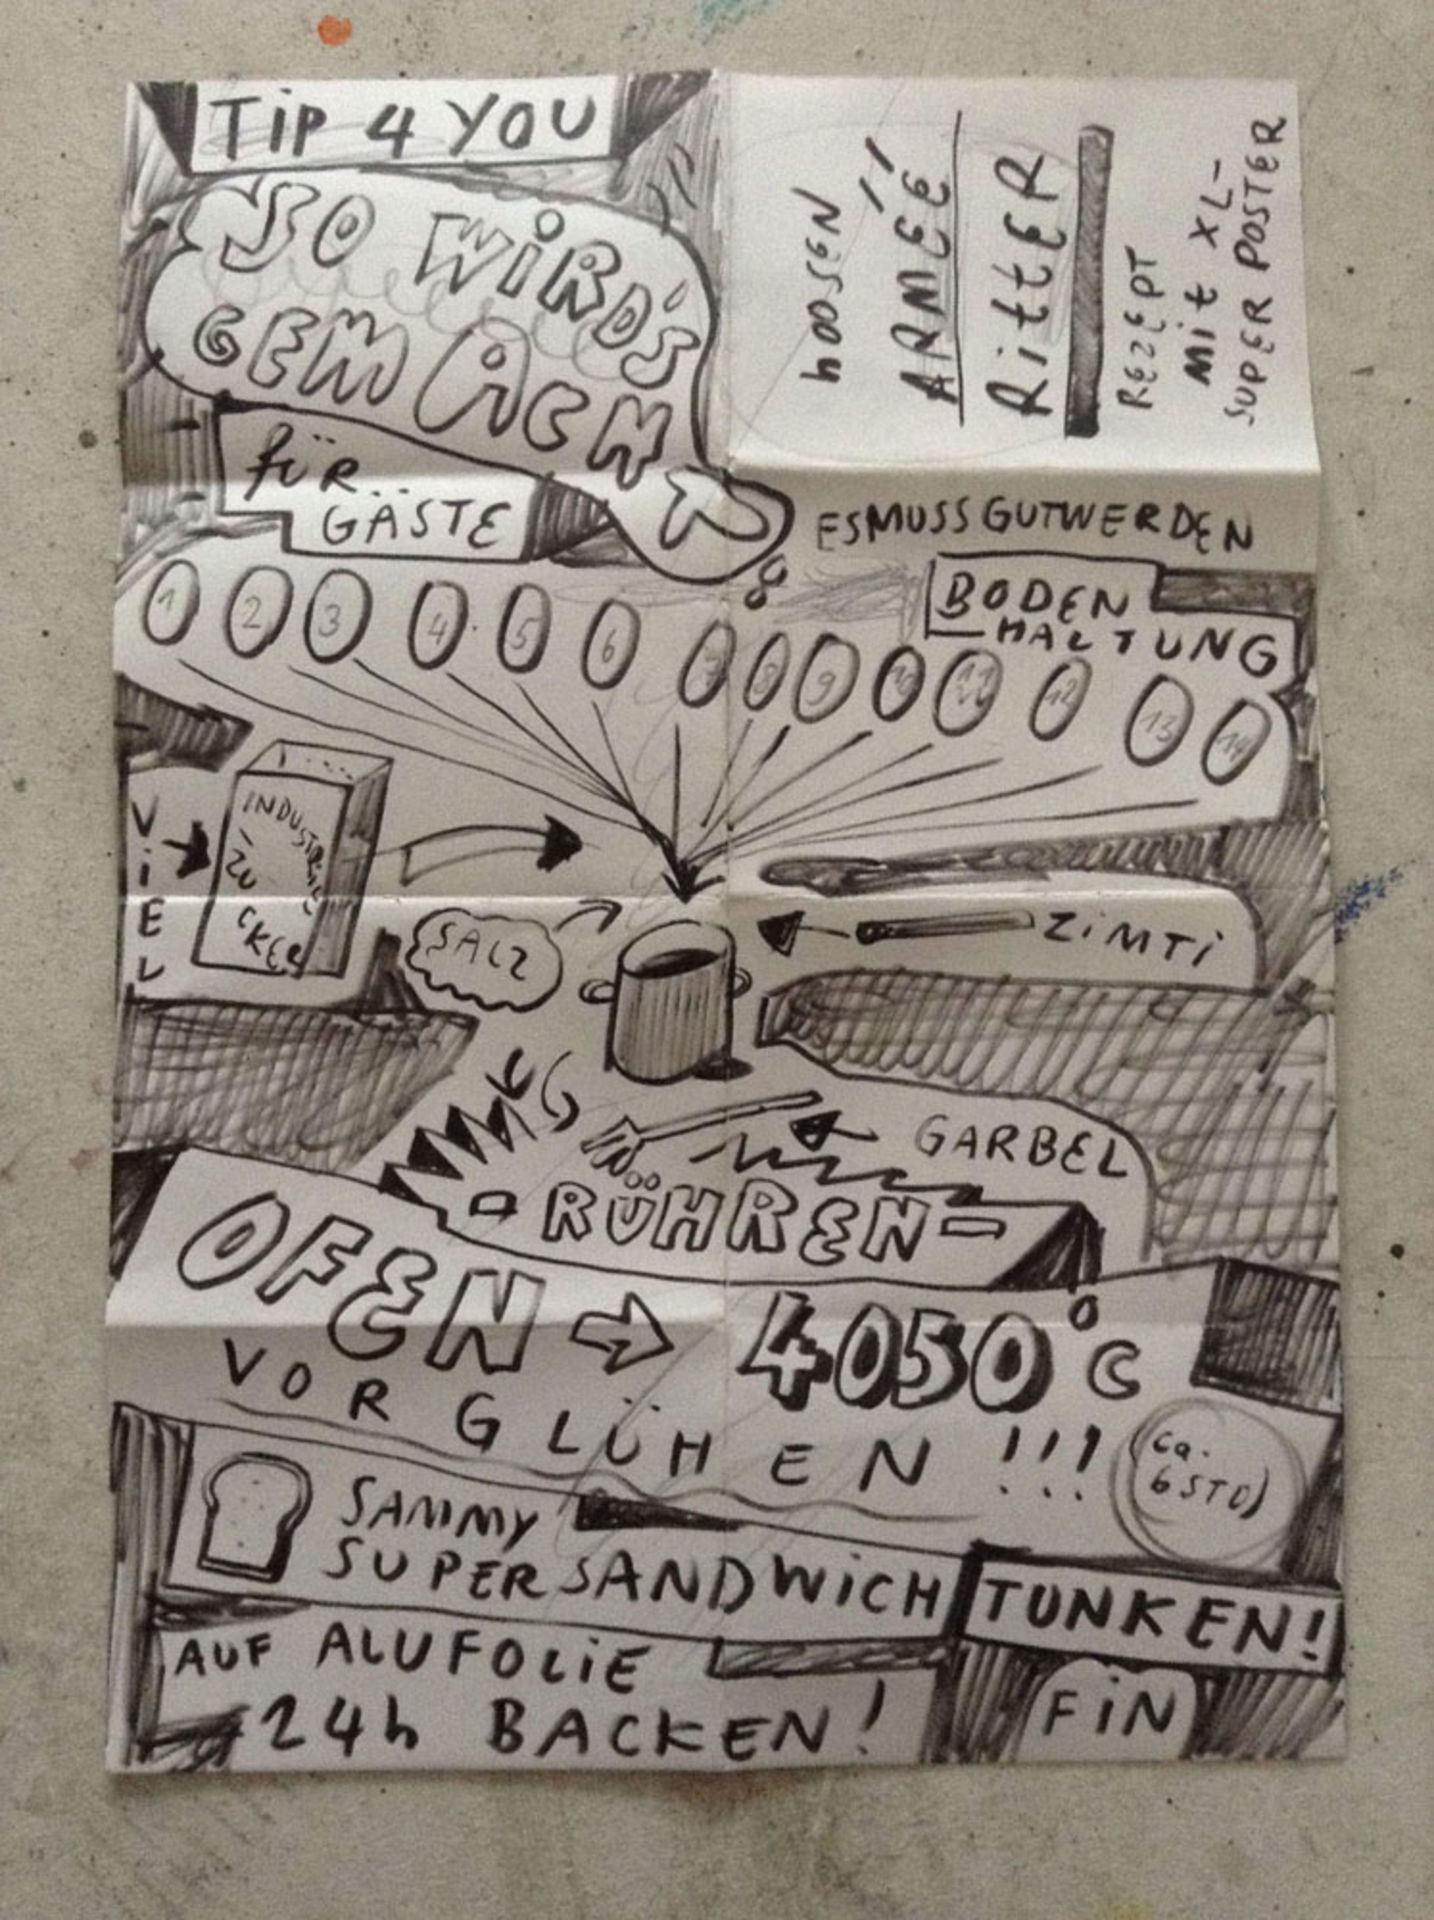 TiP 4 YOU
SO WiRD'S
GEMACHT
füR
GÄSTE
hOOSEN
ARMEE
RittER
REZEPT
Mit XL-
SUPER POSTER
ESMUSSGUTWERDEN
BODEN
HALTUNG
1 2 3 4 5 6 7 8 9 10 11 12 13 14
ViEL
INDUSTRIE
ZU
CKER
SALZ
ZiMTi
GARBEL
- RÜHREN -
OFEN → 4050°C
VORGLÜHEN !!!
(ca.
6 STD)
SAMMY
SUPERSANDWiCH
TUNKEN!
AUF ALUFOLiE
24h BACKEN!
FiN